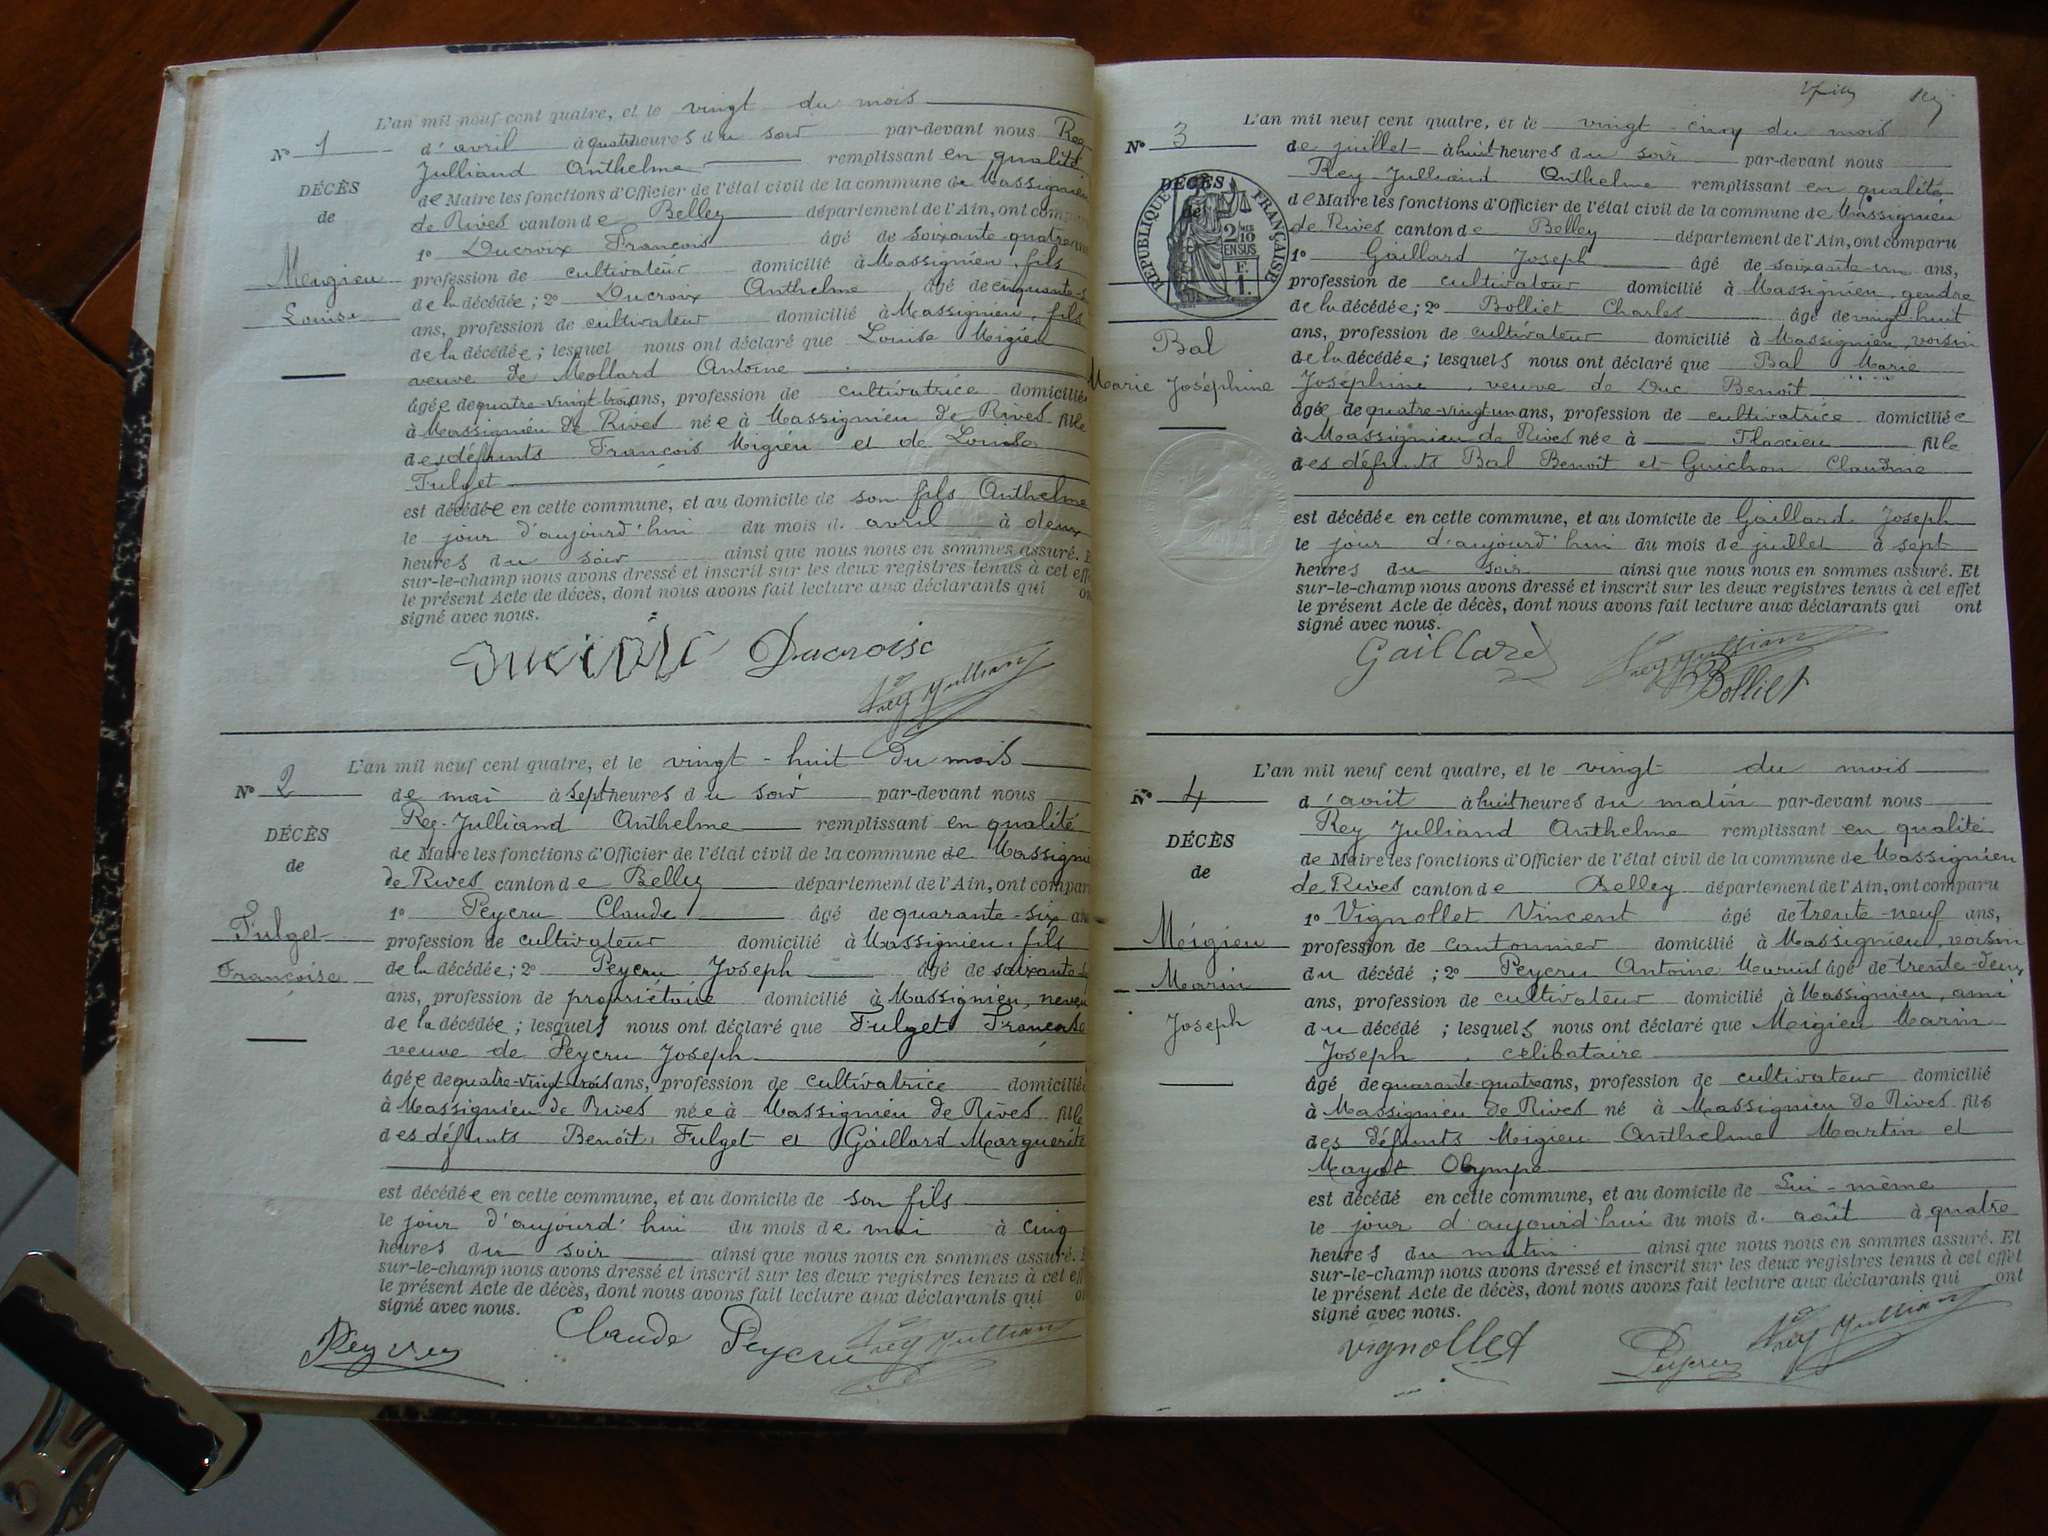 L'an mil neuf cent quatre, et le vingt du mois
N° 1
d'avril à quatre heures du soir par-devant nous Rey
Julliand Anthelme remplissant en qualité
DÉCÈS
de Maire les fonctions d'Officier de l'état civil de la commune de Massignieu
de
de Rives canton de Belley département de l'Ain, ont comparu
1° Ducroix François âgé de soixante-quatre ans
Meigieu
profession de cultivateur domicilié à Massignieu, fils
Louise
de la décédée; 2° Ducroix Anthelme âgé de cinquante-
ans, profession de cultivateur domicilié à Massignieu, fils
de la décédée; lesquel nous ont déclaré que Louise Migieu
veuve de Mollard Antoine
âgée de quatre-vingt-trois ans, profession de cultivatrice domiciliée
à Massignieu de Rives née à Massignieu de Rives fille
des défunts François Migieu et de Louise
Fulget
est décédée en cette commune, et au domicile de son fils Anthelme
le jour d'aujourd'hui du mois d. avril à deux
heures du soir ainsi que nous nous en sommes assuré. E
sur-le-champ nous avons dressé et inscrit sur les deux registres tenus à cet eff
le présent Acte de décès, dont nous avons fait lecture aux déclarants qui on
signé avec nous.
Ducroix Ducroix
Rey Julliand
L'an mil neuf cent quatre, et le vingt-huit du mois
N° 2
de mai à sept heures du soir par-devant nous
Rey-Julliand Anthelme remplissant en qualité
DÉCÈS
de Maire les fonctions d'Officier de l'état civil de la commune de Massigni
de
de Rives canton de Belley département de l'Ain, ont comparu
1° Peycru Claude âgé de quarante-six ans
Fulget
profession de cultivateur domicilié à Massignieu, fils
Françoise
de la décédée; 2° Peycru Joseph âgé de soixante-
ans, profession de propriétaire domicilié à Massignieu, neveu
de la décédée; lesquels nous ont déclaré que Fulget Françoise
veuve de Peycru Joseph
âgée de quatre-vingt-trois ans, profession de cultivatrice domiciliée
à Massignieu de Rives née à Massignieu de Rives fille
des défunts Benoît Fulget et Gaillard Marguerite
est décédée en cette commune, et au domicile de son fils
le jour d'aujourd'hui du mois de mai à cinq
heures du soir ainsi que nous nous en sommes assuré. E
sur-le-champ nous avons dressé et inscrit sur les deux registres tenus à cet eff
le présent Acte de décès, dont nous avons fait lecture aux déclarants qui on
signé avec nous.
Peycru Claude Peycru Rey Julliand
L'an mil neuf cent quatre, et le vingt-cinq du mois
N° 3
de juillet à huit heures du soir par-devant nous
Rey-Julliand Anthelme remplissant en qualité
DÉCÈS
de
RÉPUBLIQUE FRANÇAISE
2/10 EN SUS
de Maire les fonctions d'Officier de l'état civil de la commune de Massignieu
de Rives canton de Belley département de l'Ain, ont comparu
1° Gaillard Joseph âgé de soixante-un ans,
profession de cultivateur domicilié à Massignieu, gendre
de la décédée; 2° Bolliet Charles âgé de vingt-huit
ans, profession de cultivateur domicilié à Massignieu, voisin
Bal
de la décédée; lesquels nous ont déclaré que Bal Marie
Marie Joséphine
Joséphine, veuve de Duc Benoît
âgée de quatre-vingt un ans, profession de cultivatrice domiciliée
à Massignieu de Rives née à Flaxieu fille
des défunts Bal Benoît et Guichon Claudine
est décédée en cette commune, et au domicile de Gaillard Joseph
le jour d'aujourd'hui du mois de juillet à sept
heures du soir ainsi que nous nous en sommes assuré. Et
sur-le-champ nous avons dressé et inscrit sur les deux registres tenus à cet effet
le présent Acte de décès, dont nous avons fait lecture aux déclarants qui ont
signé avec nous.
Gaillard Rey Julliand
Bolliet
L'an mil neuf cent quatre, et le vingt du mois
N° 4
d'août à huit heures du matin par-devant nous
Rey Julliand Anthelme remplissant en qualité
DÉCÈS
de Maire les fonctions d'Officier de l'état civil de la commune de Massignieu
de
de Rives canton de Belley département de l'Ain, ont comparu
1° Vignollet Vincent âgé de trente-neuf ans,
Meigieu
profession de cantonnier domicilié à Massignieu, voisin
Marin
du décédé; 2° Peycru Antoine Marius âgé de trente-deux
ans, profession de cultivateur domicilié à Massignieu, ami
Joseph
du décédé; lesquels nous ont déclaré que Meigieu Marin
Joseph, célibataire
âgé de quarante-quatre ans, profession de cultivateur domicilié
à Massignieu de Rives né à Massignieu de Rives fils
des défunts Migieu Anthelme Martin et
Mayot Olympe
est décédé en cette commune, et au domicile de lui-même
le jour d'aujourd'hui du mois d. août à quatre
heures du matin ainsi que nous nous en sommes assuré. Et
sur-le-champ nous avons dressé et inscrit sur les deux registres tenus à cet effet
le présent Acte de décès, dont nous avons fait lecture aux déclarants qui ont
signé avec nous.
Vignollet Peycru Rey Julliand